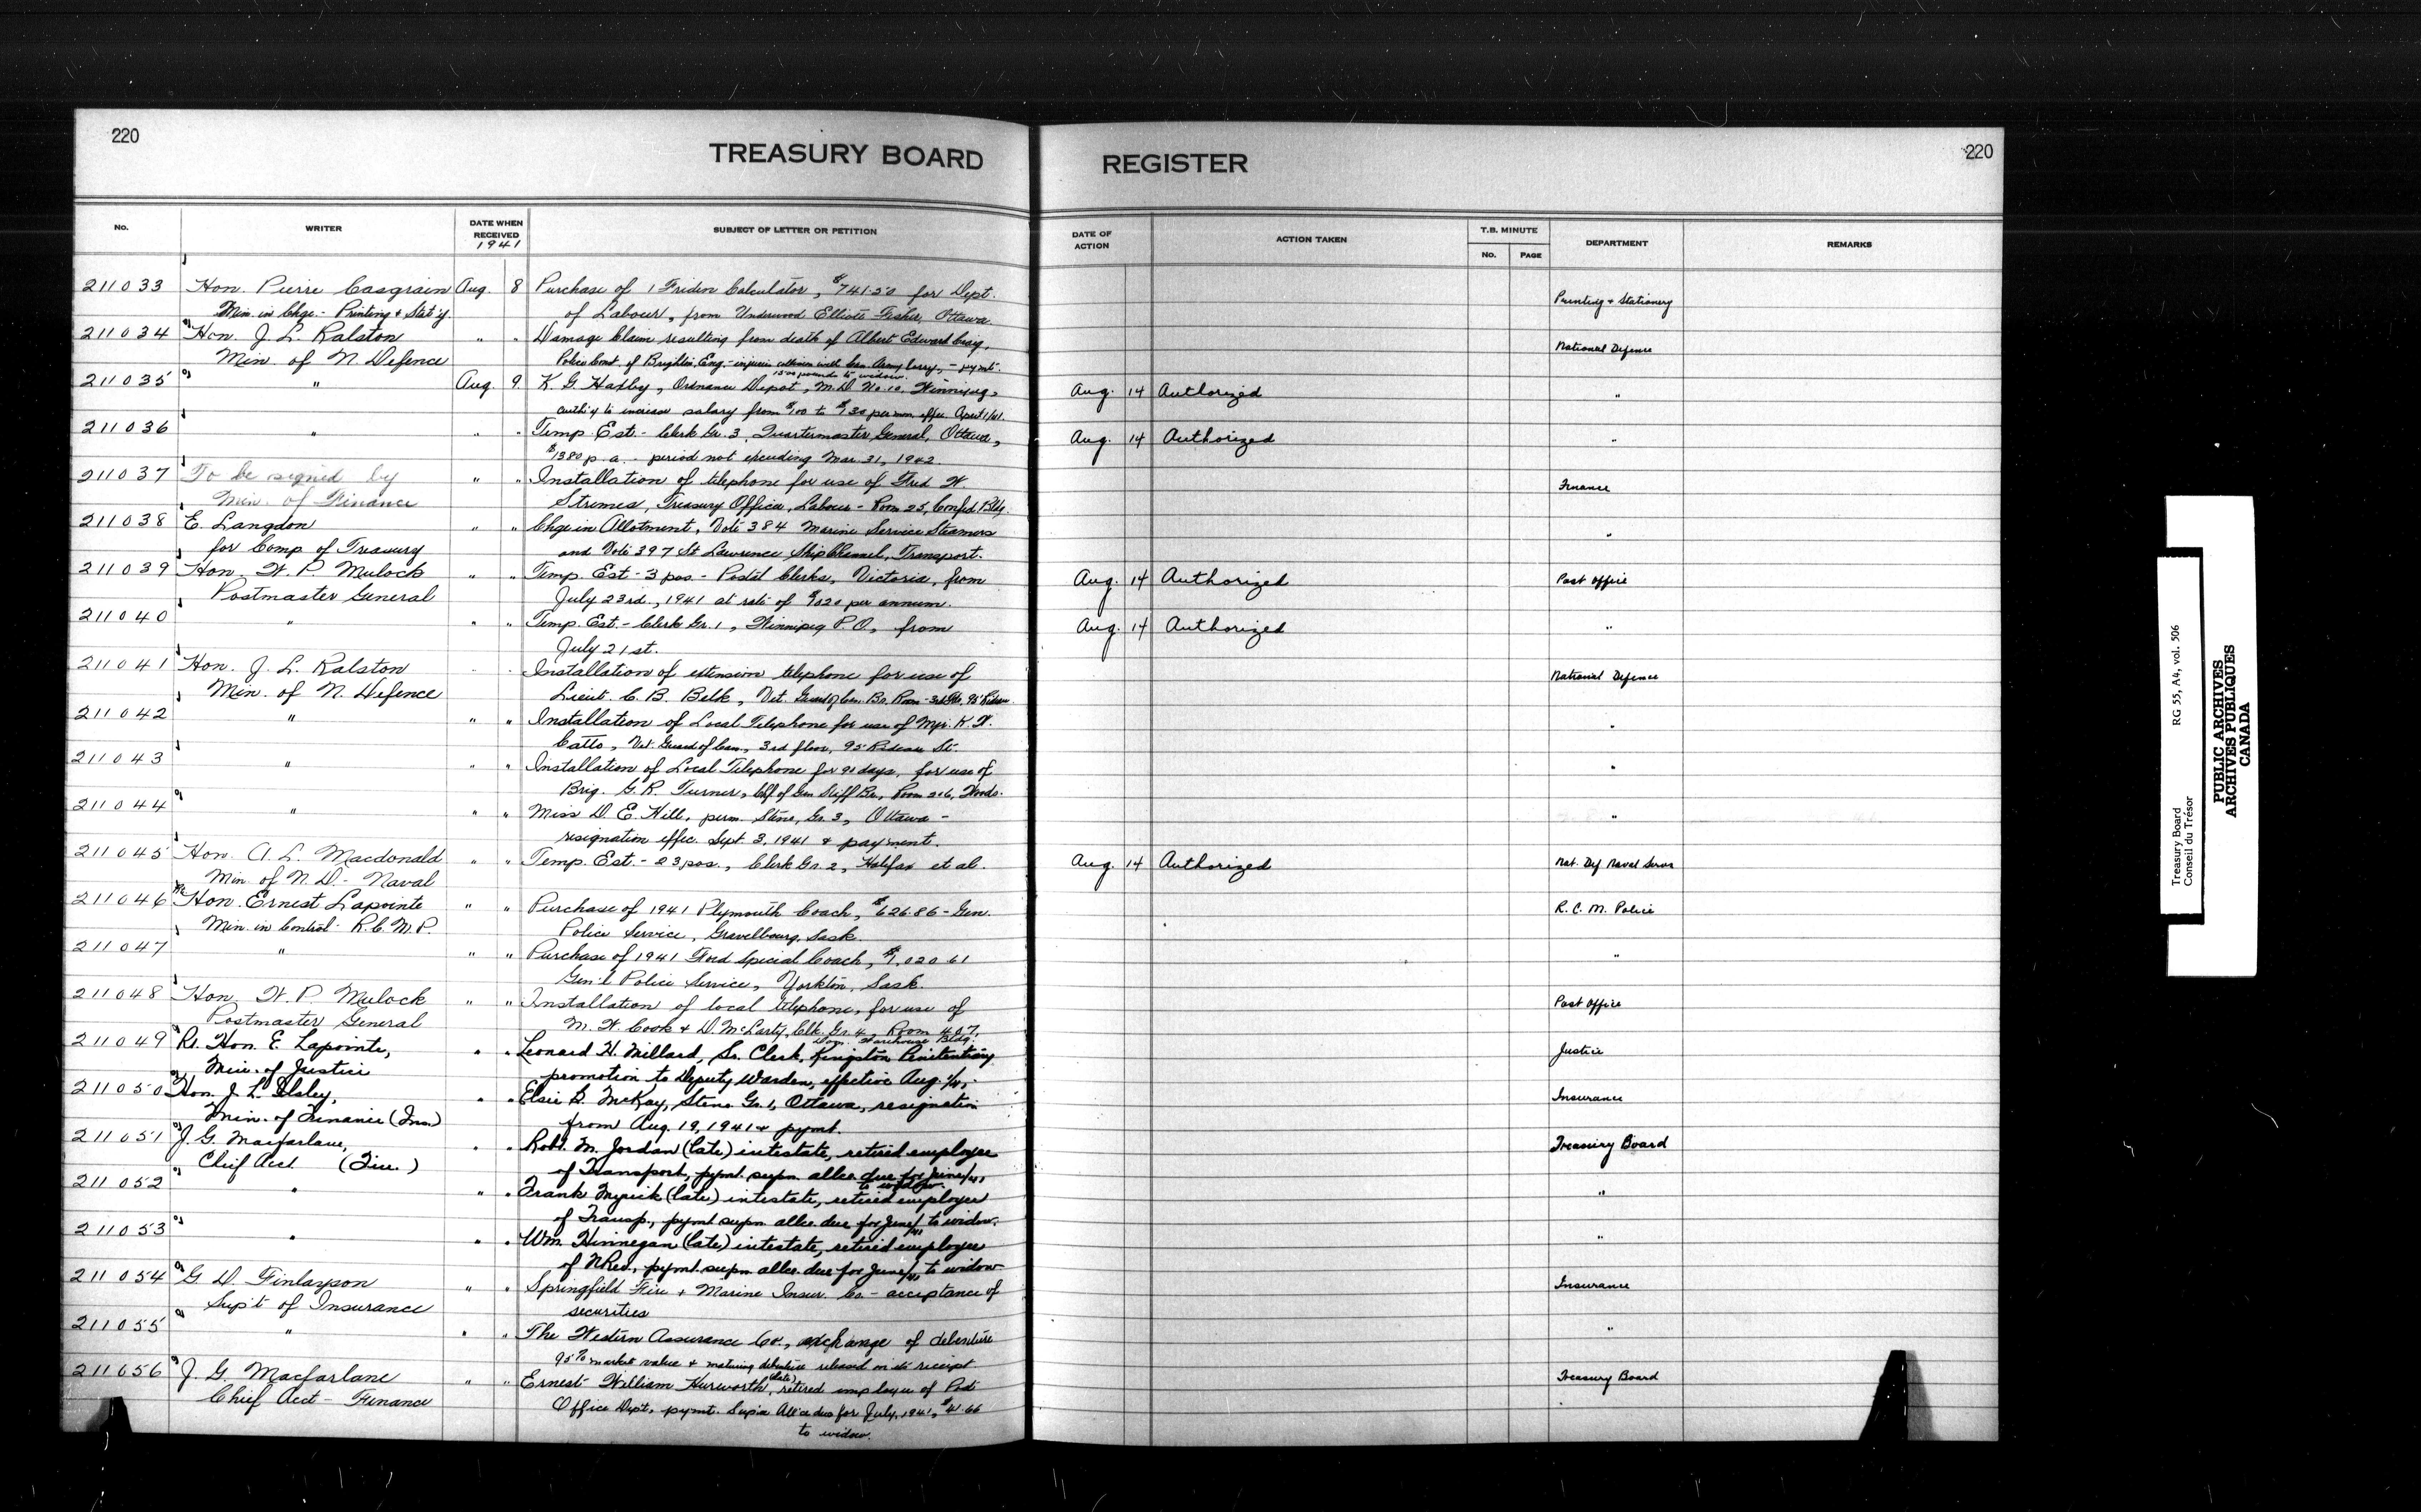 220
TREASURY BOARD
REGISTER
220
No.
WRITER
DATE WHEN RECEIVED
1941
SUBJECT OF LETTER OR PETITION
DATE OF ACTION
ACTION TAKEN
T.B. MINUTE
No.
PAGE
DEPARTMENT
REMARKS
211033 Hon. Pierre Casgrain Aug. 8 Purchase of 1 Friden Calculator, $741.50 for Dept. Printing & Stationery
Min. in Chge. - Printing & Stat'y. of Labour, from Underwood Elliott Fisher, Ottawa.
211034 Hon. J. L. Ralston " " Damage Claim resulting from death of Albert Edward Craig, National Defence
Min. of N. Defence Police Const. of Brighton, Eng. - injuries collision with Can. Army lorry, - paymt.
1500 pounds to widow.
211035 " Aug. 9 K. G. Haxby, Ordnance Depot, M.D. No. 10, Winnipeg, Aug. 14 Authorized "
auth'y to increase salary from $100 to $130 per mon. effec. April 1/41.
211036 " " " Temp. Est. - Clerk Gr. 3, Quartermaster General, Ottawa, Aug. 14 Authorized "
$1380 p.a. - period not exceeding Mar. 31, 1942.
211037 To be signed by " " Installation of telephone for use of Fred W. Finance
Min. of Finance Treasury Officer, Labour - Room 25, Confed. Bldg.
211038 E. Langdon " " Chge in Allotment, Vote 384 Marine Service Steamers "
for Comp. of Treasury and Vote 397 St Lawrence Ship Channel, Transport.
211039 Hon. W. P. Mulock " " Temp. Est - 3 pos - Postal Clerks, Victoria, from Aug. 14 Authorized Post Office
Postmaster General July 23rd., 1941 at rate of $1020 per annum.
211040 " " " Temp. Est. - Clerk Gr. 1, Winnipeg P.O., from Aug. 14 Authorized "
July 21st.
211041 Hon. J. L. Ralston " " Installation of extension telephone for use of National Defence
Min. of N. Defence Lieut. C. B. Belk, Vet. Guard of Can. Bd. Room - 3rd flr, 95 Rideau.
211042 " " " Installation of Local Telephone for use of Mjr. K. W. "
Catto, Vet. Guard of Can., 3rd floor, 95 Rideau St.
211043 " " " Installation of Local Telephone for 90 days, for use of "
Brig. G. R. Turner, Chf of Gen Staff Br., Room 206, Woods.
211044 " " " Miss D. E. Hill, perm. Steno, Gr. 3, Ottawa - "
resignation effec. Sept. 3, 1941 & payment.
211045 Hon. A. L. Macdonald " " Temp. Est - 23 pos., Clerk Gr. 2, Halifax et al. Aug. 14 Authorized Nat. Def. Naval Servs
Min. of N. D. - Naval
211046 Hon. Ernest Lapointe " " Purchase of 1941 Plymouth Coach, $626.86 - Gen. R. C. M. Police
Min. in Control - R.C.M.P. Police Service, Gravelbourg, Sask.
211047 " " " Purchase of 1941 Ford Special Coach, $1,020.61 "
Gen'l Police Service, Yorkton, Sask.
211048 Hon. W. P. Mulock " " Installation of local telephone, for use of Post Office
Postmaster General M. W. Cook & D. McLarty, Clk. Gr. 4, Room 407,
Dom. Warehouse Bldg.
211049 Rt. Hon. E. Lapointe, " " Leonard H. Millard, Sr. Clerk, Kingston Penitentiary Justice
Min. of Justice promotion to Deputy Warden, effective Aug. 1/41.
211050 Hon. J. L. Ilsley, " " Elsie B. McKay, Steno Gr. 1, Ottawa, resignation Insurance
Min. of Finance (Ins.) from Aug. 19, 1941 & pymt.
211051 J. G. Macfarlane, " " Robt. M. Jordan (late) intestate, retired employee Treasury Board
Chief Acct. (Fin.) of Transport, pymt. supn. allce. due for June/41,
to widow.
211052 " " " Frank Myrick (late) intestate, retired employee "
of Transp., pymt supn allce. due for June/41 to widow.
211053 " " " Wm. Hinnegan (late) intestate, retired employee "
of N Rev, pymt. supn allce. due for June/41 to widow
211054 G. D. Finlayson " " Springfield Fire & Marine Insur. Co. - acceptance of Insurance
Sup't of Insurance securities
211055 " " " The Western Assurance Co., exchange of debenture "
95% market value & maturing debenture released on its receipt
211056 J. G. Macfarlane " " Ernest William Hurworth (late), retired employee of Post Treasury Board
Chief Acct - Finance Office Dept., pymt. Sup'n All'ce due for July, 1941, $41.66
to widow.
Treasury Board
Conseil du Trésor
RG 55, A4, vol. 506
PUBLIC ARCHIVES
ARCHIVES PUBLIQUES
CANADA